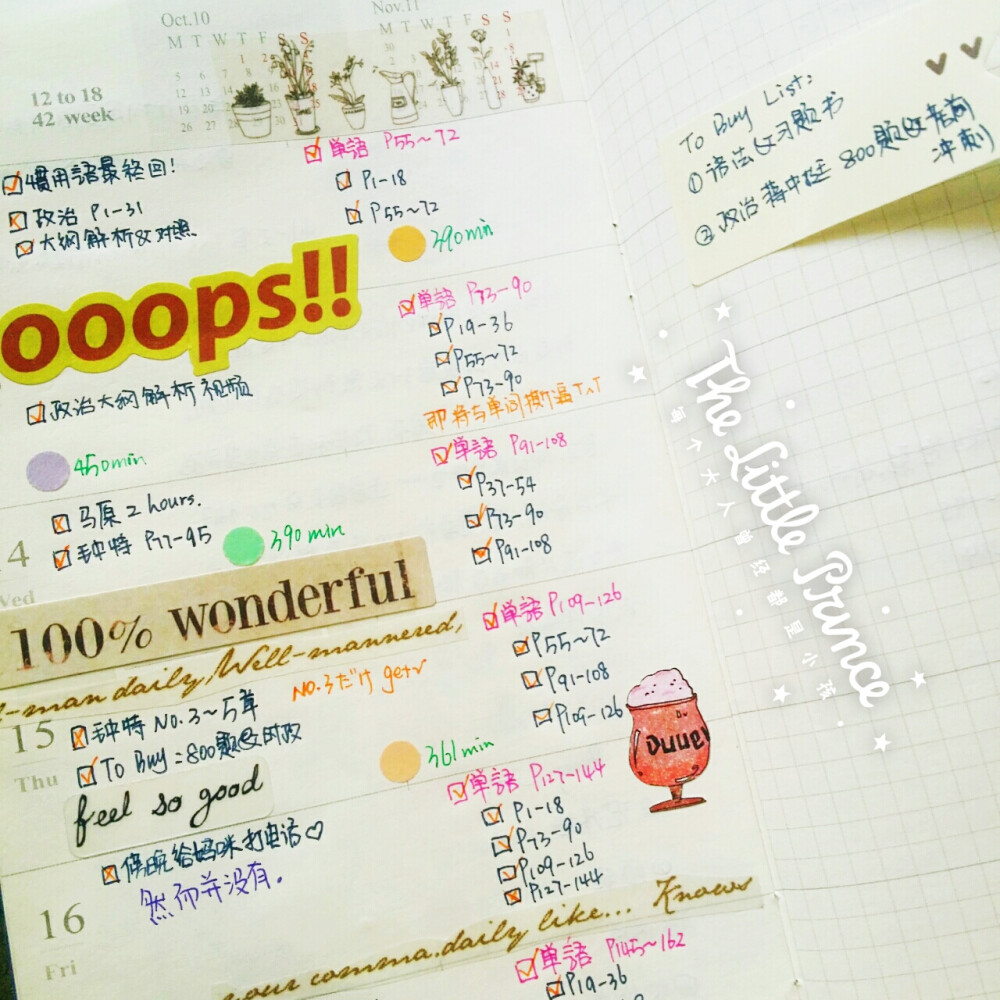 Oct.10
Nov.11
M T W T F S S
M T W T F S S
12 to 18
42 week
慣用語最終回!
政治 P1-31
大纲解析&对照
単語 P55~72
P1-18
P55~72
390min
ooops!!
政治大纲解析视频
単語 P73-90
P19-36
P55~72
P73-90
即将与单词撕逼T^T
450min
马原 2 hours.
钟特 P77-95
390 min
単語 P91-108
P37-54
P73-90
P91-108
4
Wed
100% wonderful
-man daily, Well-mannered,
単語 P109-126
P55~72
P91-108
P109-126
No.3だけ getv
15
Thu
钟特 No.3~5章
To Buy: 800题&时政
361min
feel so good
単語 P127-144
P1-18
P73-90
P109-126
P127-144
傍晚给妈咪打电话♡
然而并没有.
16
Fri
your comma.daily like... Knows
単語 P145~162
P19-36
To Buy List:
①语法&习题书
②政治蒋中挺 800题&考前
冲刺
The Little Prince
每个大人曾经都是小孩